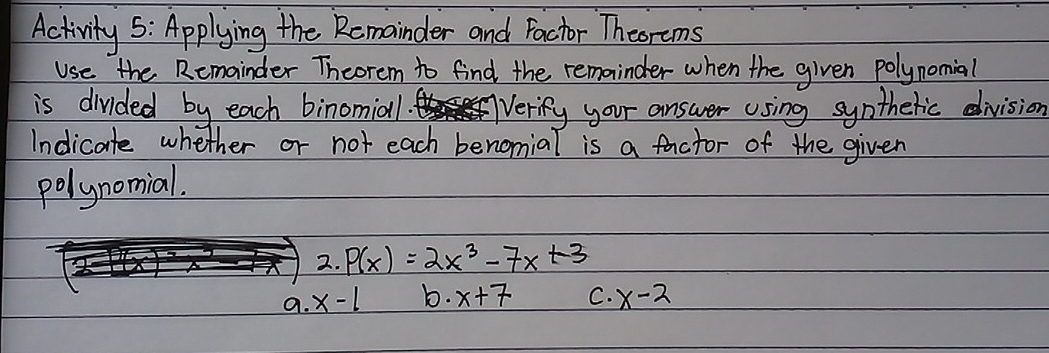 Activity 5: Applying the Remainder and Factor Theorems
Use the Remainder Theorem to find the remainder when the given polynomial
is divided by each binomial. Verify your answer using synthetic division
Indicate whether or not each benomial is a factor of the given
polynomial.
2. P(x) = 2x³ - 7x + 3
a. x - 1 b. x + 7 c. x - 2